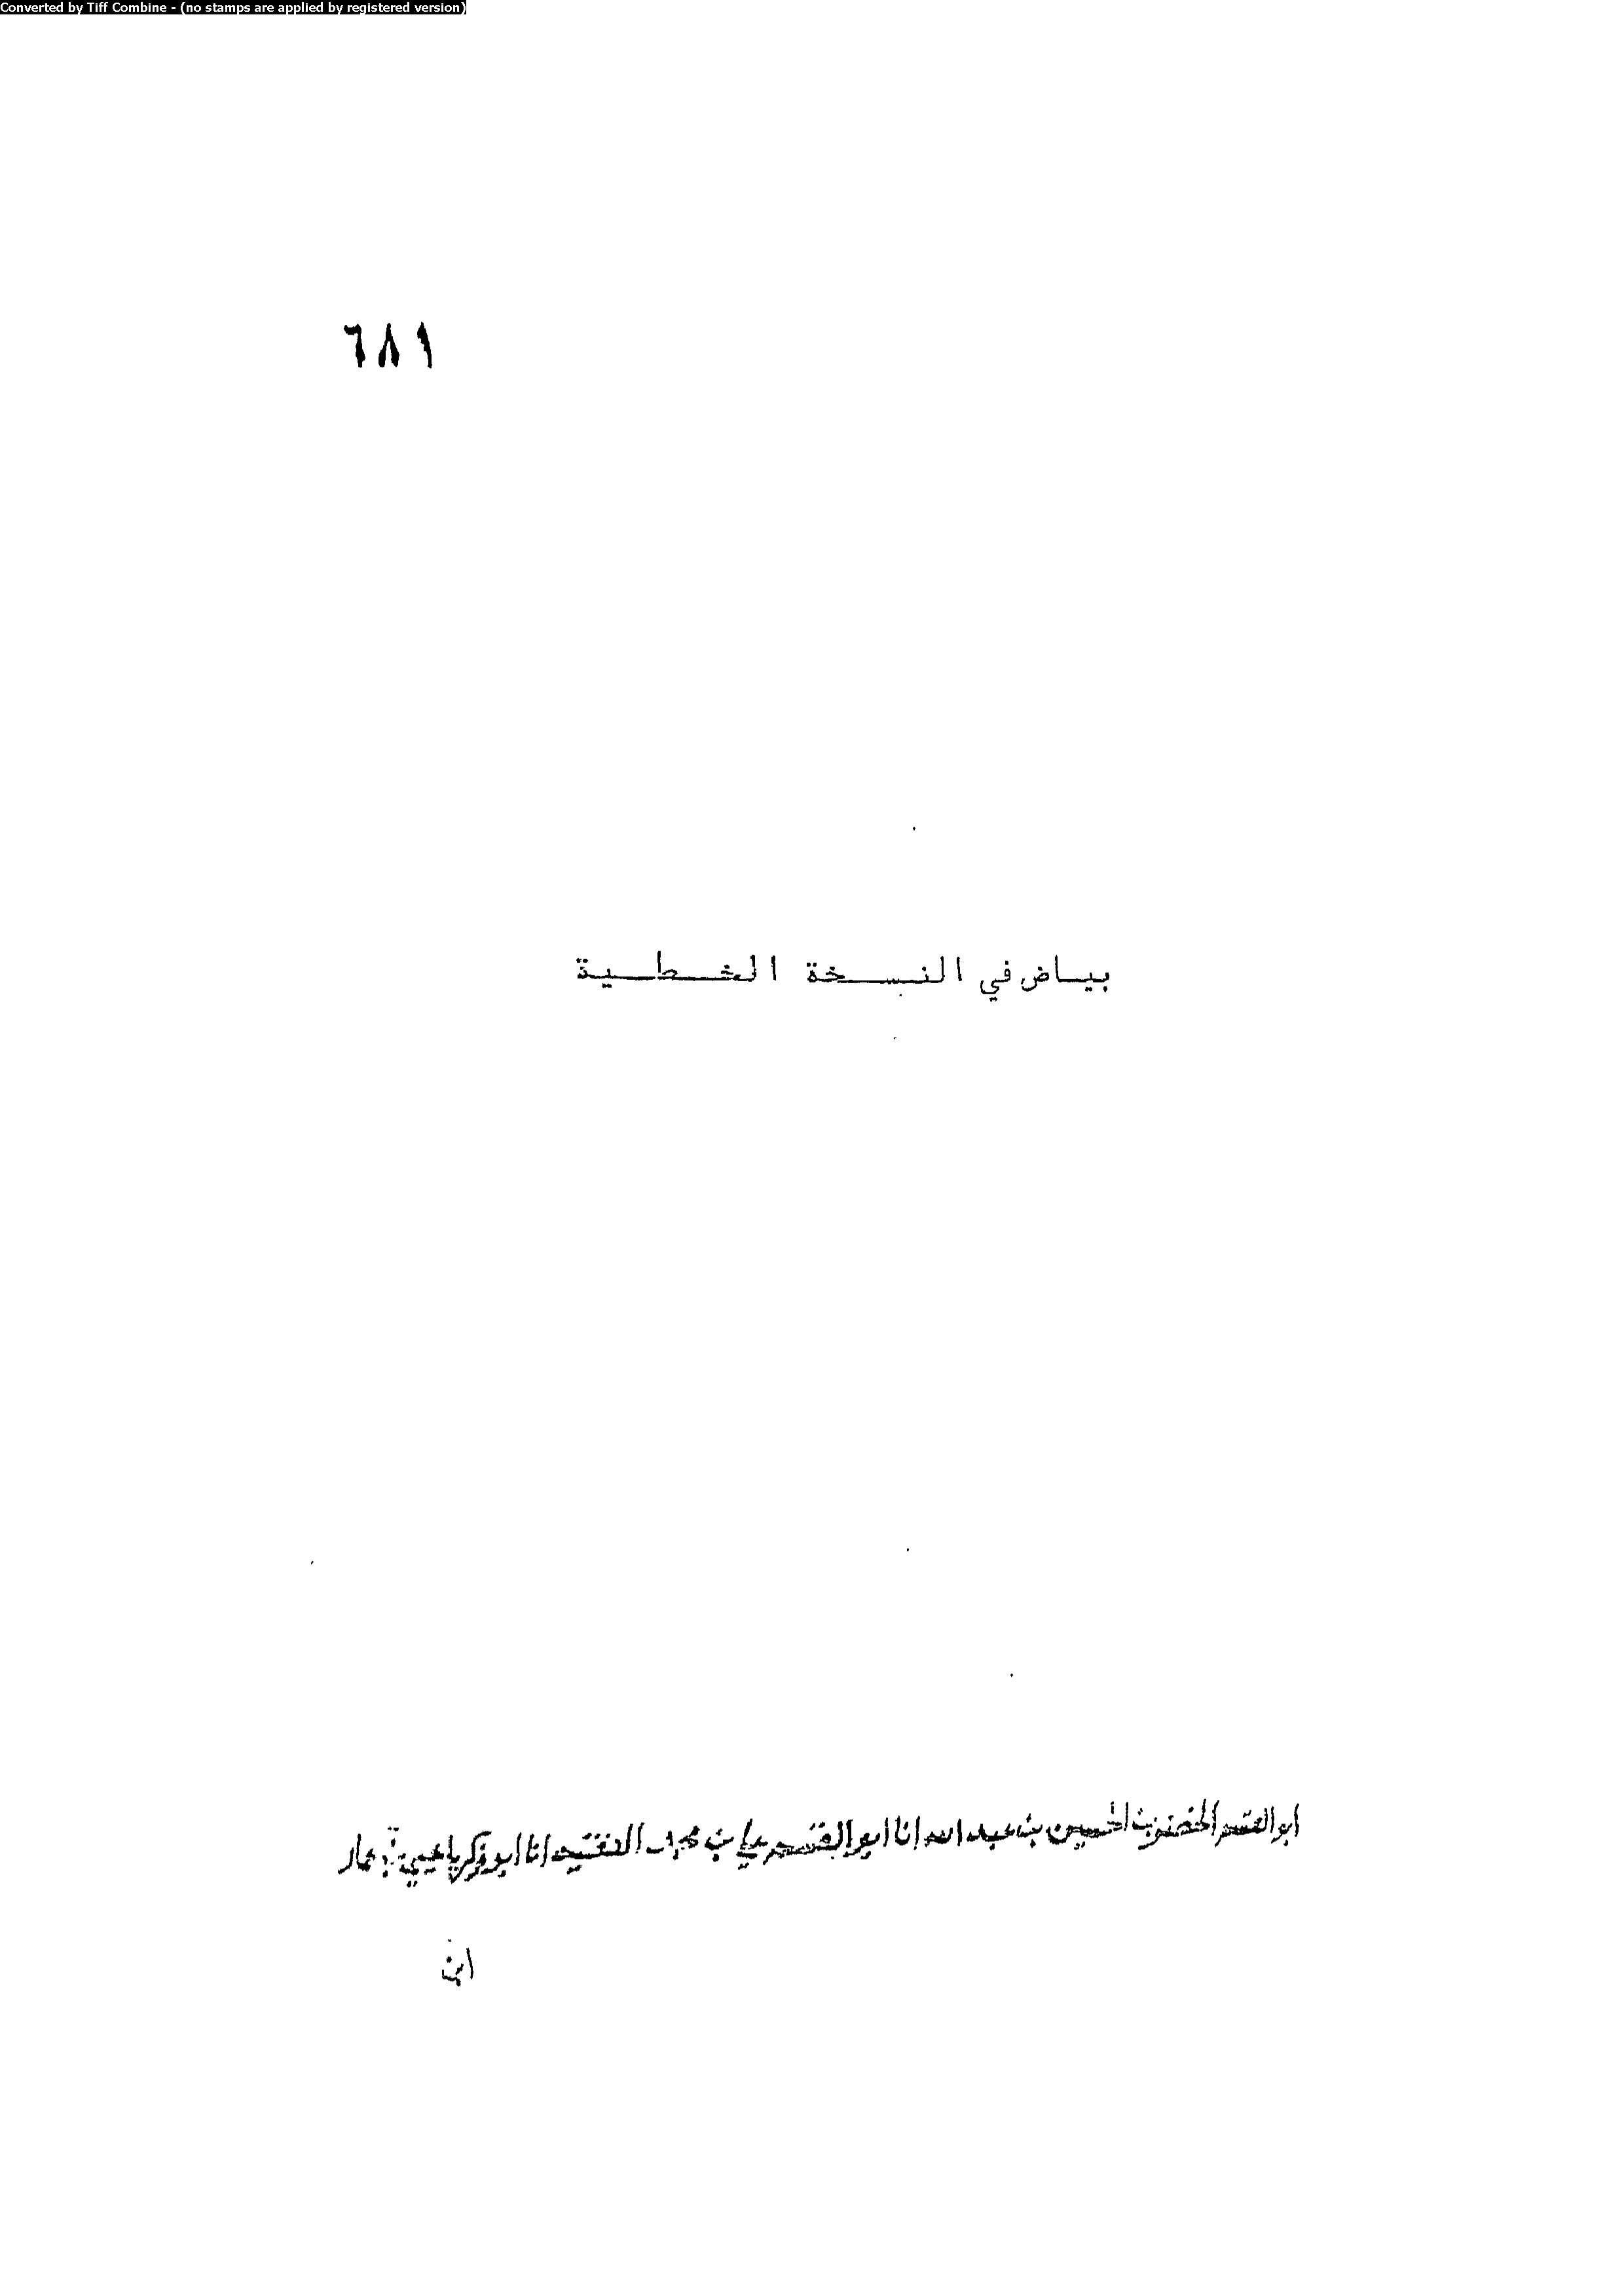 Converted by Tiff Combine - (no stamps are applied by registered version)
٦٨١
بياض في النسخة الخطية
ابو القسم الخضر بن الحسين بن عبد الله انا ابو القسم علي بن محمد الفقيه انا ابو زكريا يحيى بن عمار
ابن